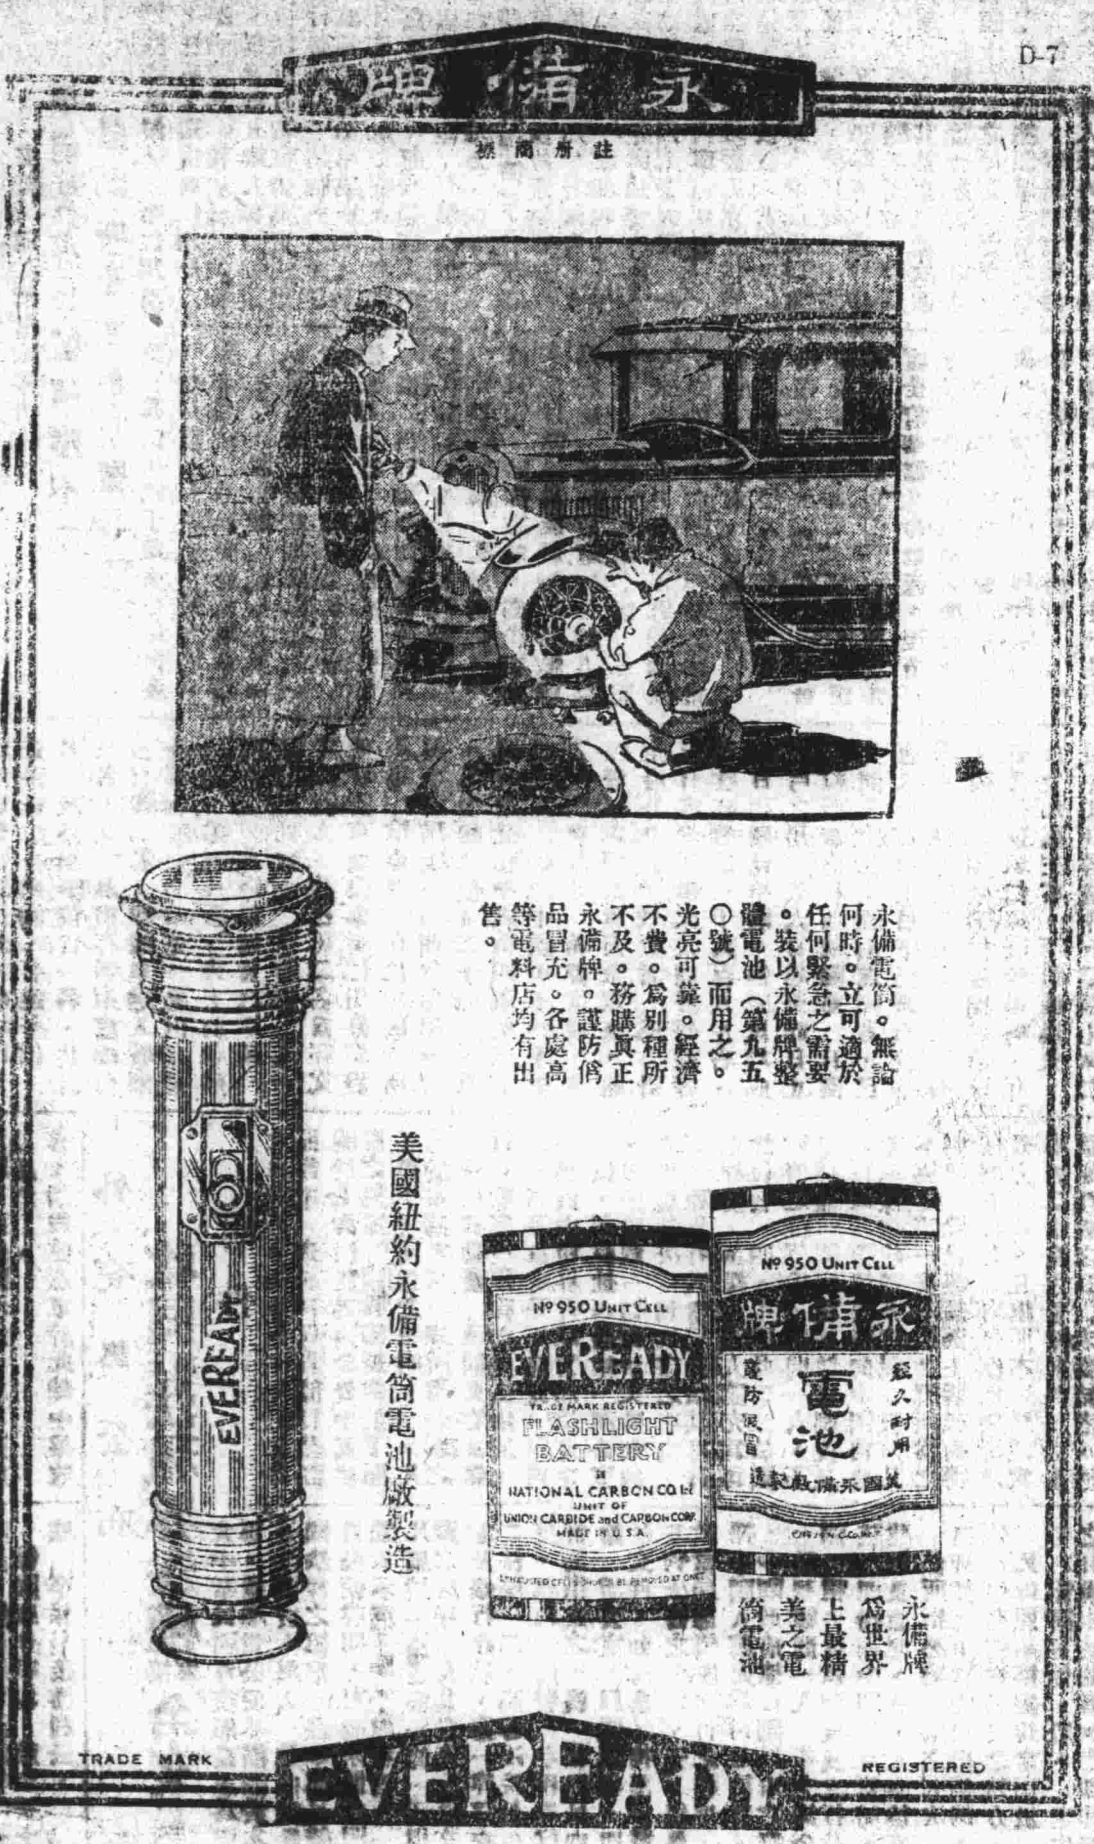 D-7
永備牌
註册商標
永備電筒。無論
何時。立可適於
任何緊急之需要
。裝以永備牌整
體電池（第九五
〇號）而用之。
光亮可靠。經濟
不費。爲別種所
不及。務購眞正
永備牌。謹防僞
品冒充。各處高
等電料店均有出
售。
美國紐約永備電筒電池廠製造
EVEREADY
Nº 950 UNIT CELL
EVEREADY
TRADE MARK REGISTERED
FLASHLIGHT
BATTERY
NATIONAL CARBON CO.
UNIT OF
UNION CARBIDE and CARBON CORP.
MADE IN U.S.A.
Nº 950 UNIT CELL
永備牌
經久耐用
電池
謹防假冒
美國永備廠製造
永備牌
爲世界
上最精
美之電
筒電池
TRADE MARK
EVEREADY
REGISTERED